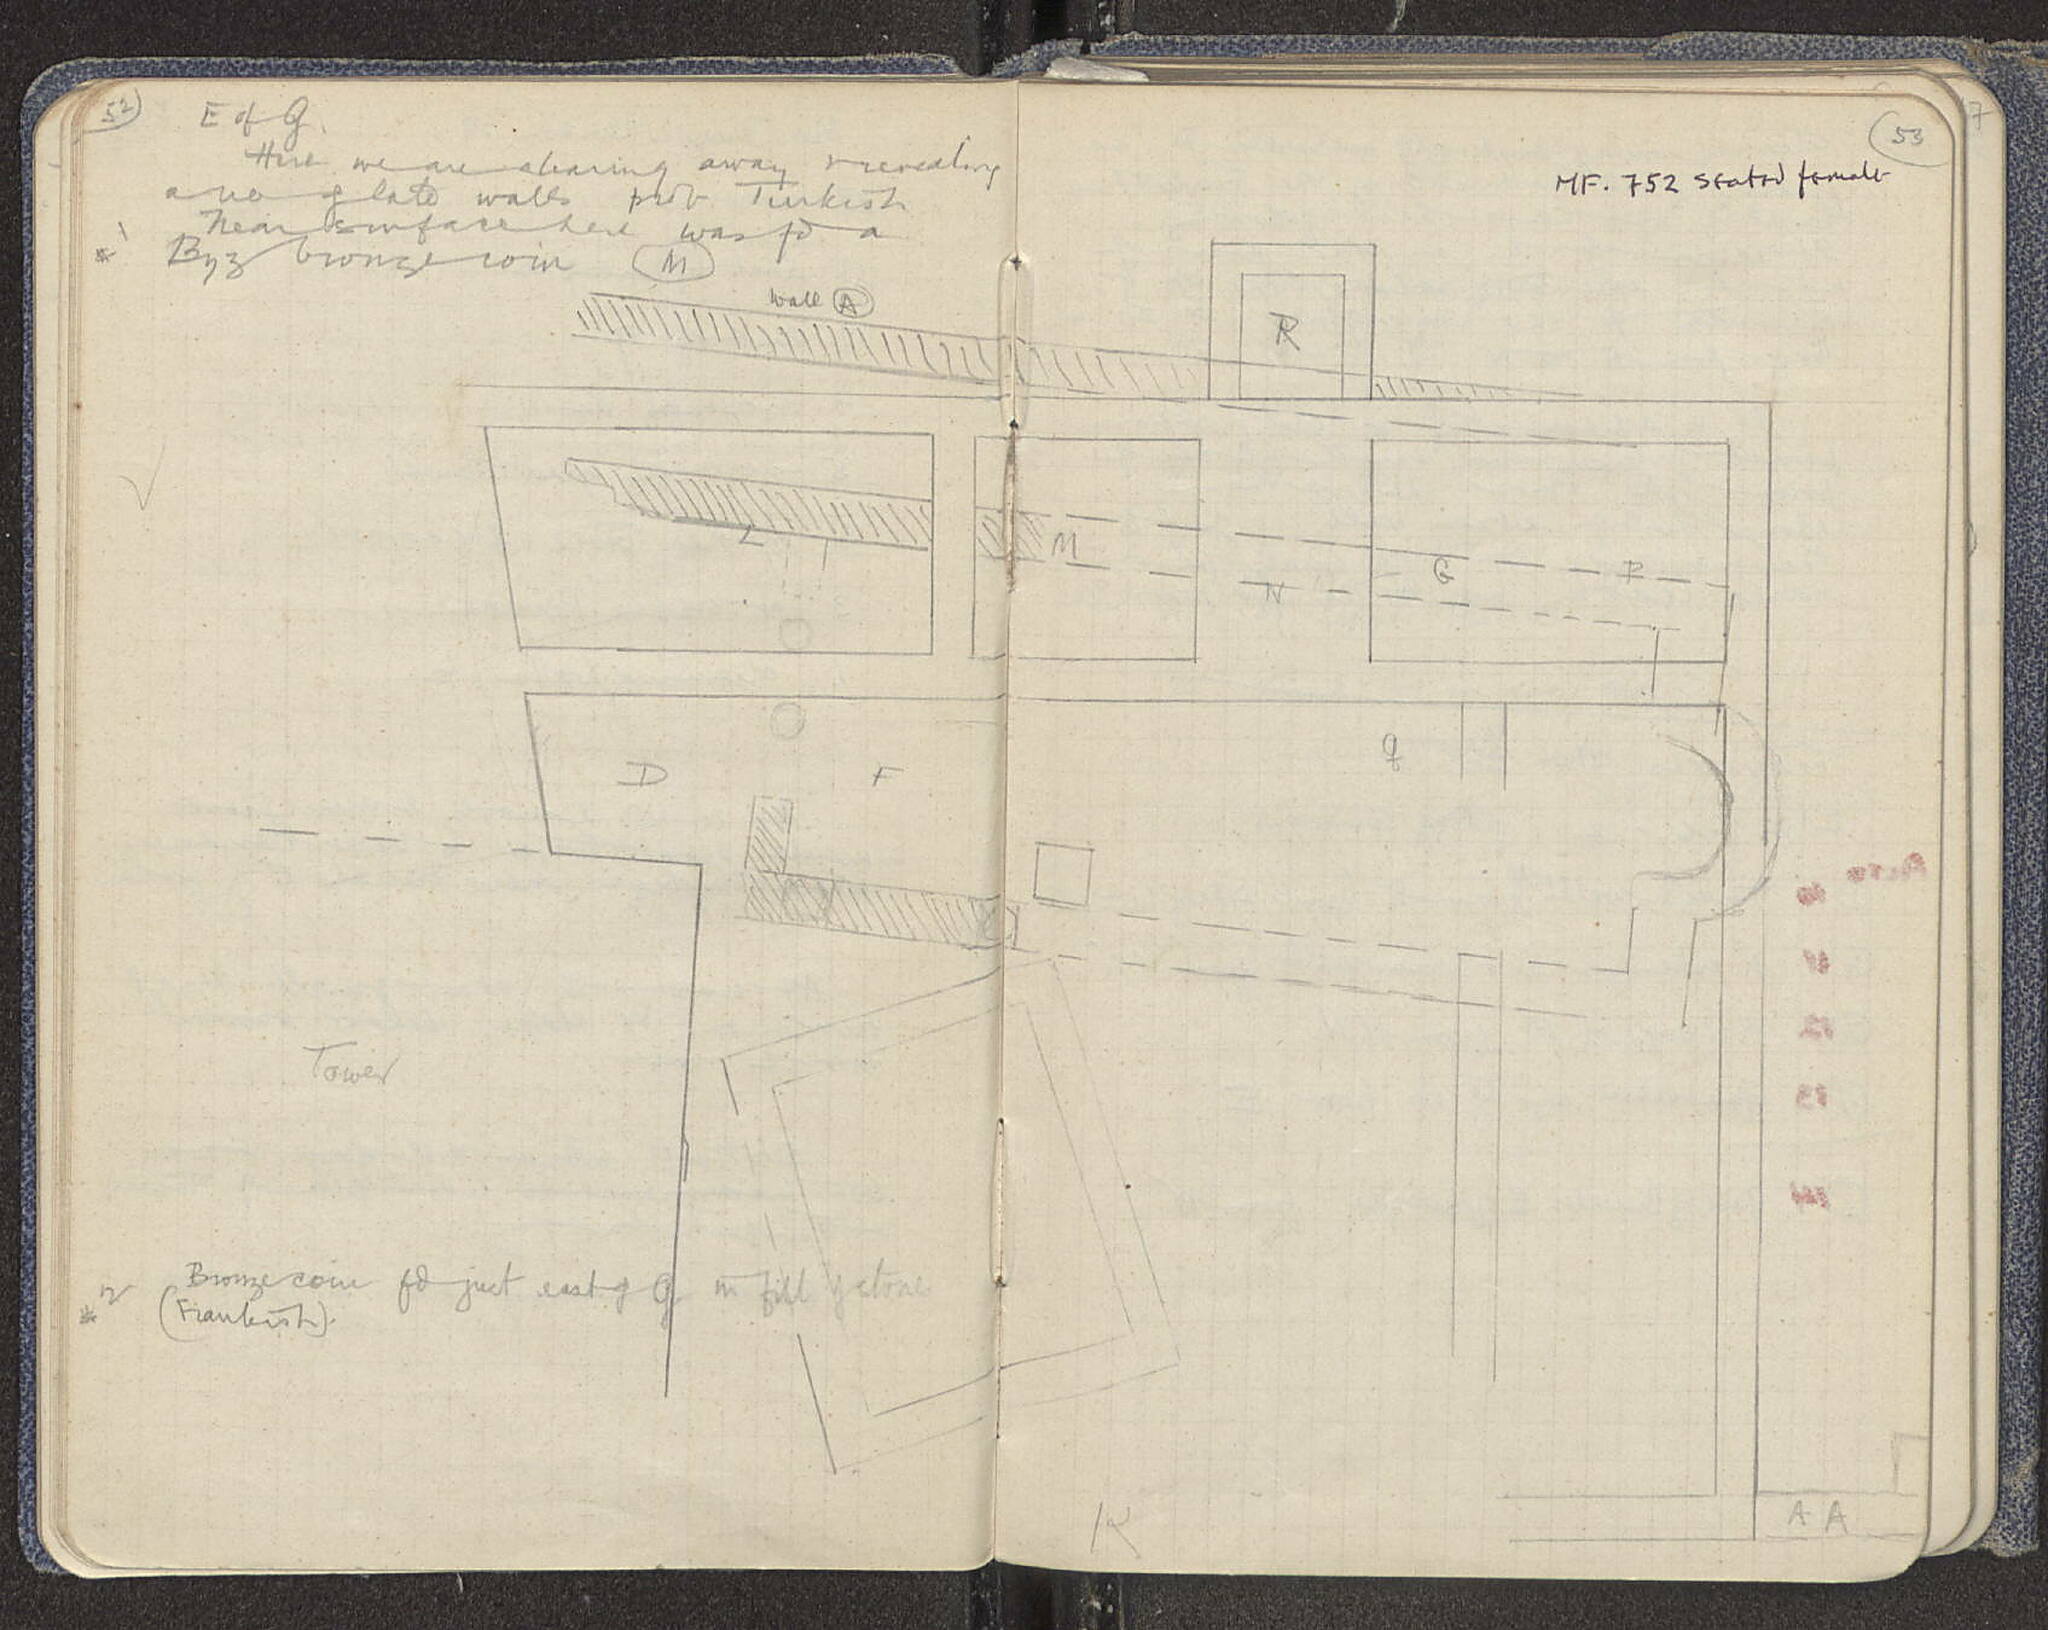 52
E of G.
Here we are clearing away & revealing
a no of late walls prob Turkish
Near surface here was fd a
*1 Byz bronze coin (M)
wall (A)
L
D F
Tower
*2 Bronze coin fd just east of G in fill of stone
(Frankish).
53
MF. 752 seated female
R
M
N
G
P
g
K
A A